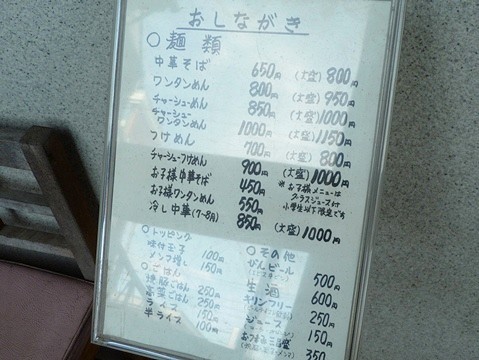 おしながき
○麺類
中華そば 650円 (大盛)800円
ワンタンめん 800円 (大盛)950円
チャーシューめん 850円 (大盛)1000円
チャーシューワンタンめん 1000円 (大盛)1150円
つけめん 700円 (大盛)800円
チャーシューつけめん 900円 (大盛)1000円
お子様中華そば 450円
お子様ワンタンめん 550円
※お子様メニューは
グラスジュース付
小学生以下限定です
冷し中華(7~8月) 850円 (大盛)1000円
○トッピング
味付玉子 100円
メンマ増し 150円
○ごはん
焼豚ごはん 250円
ごはん 250円
ライス 150円
半ライス 100円
○その他
びんビール 500円
生酒 600円
キリンフリー 250円
ジュース 150円
おつまみ三種盛 350